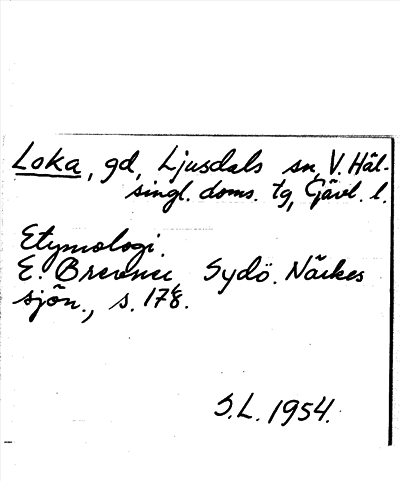 Loka, gd, Ljusdals sn, V. Häl-
singl. doms. tg, Gävl. l.
Etymologi.
E. Brevner Sydö. Närkes
sjön., s. 178.
S.L. 1954.